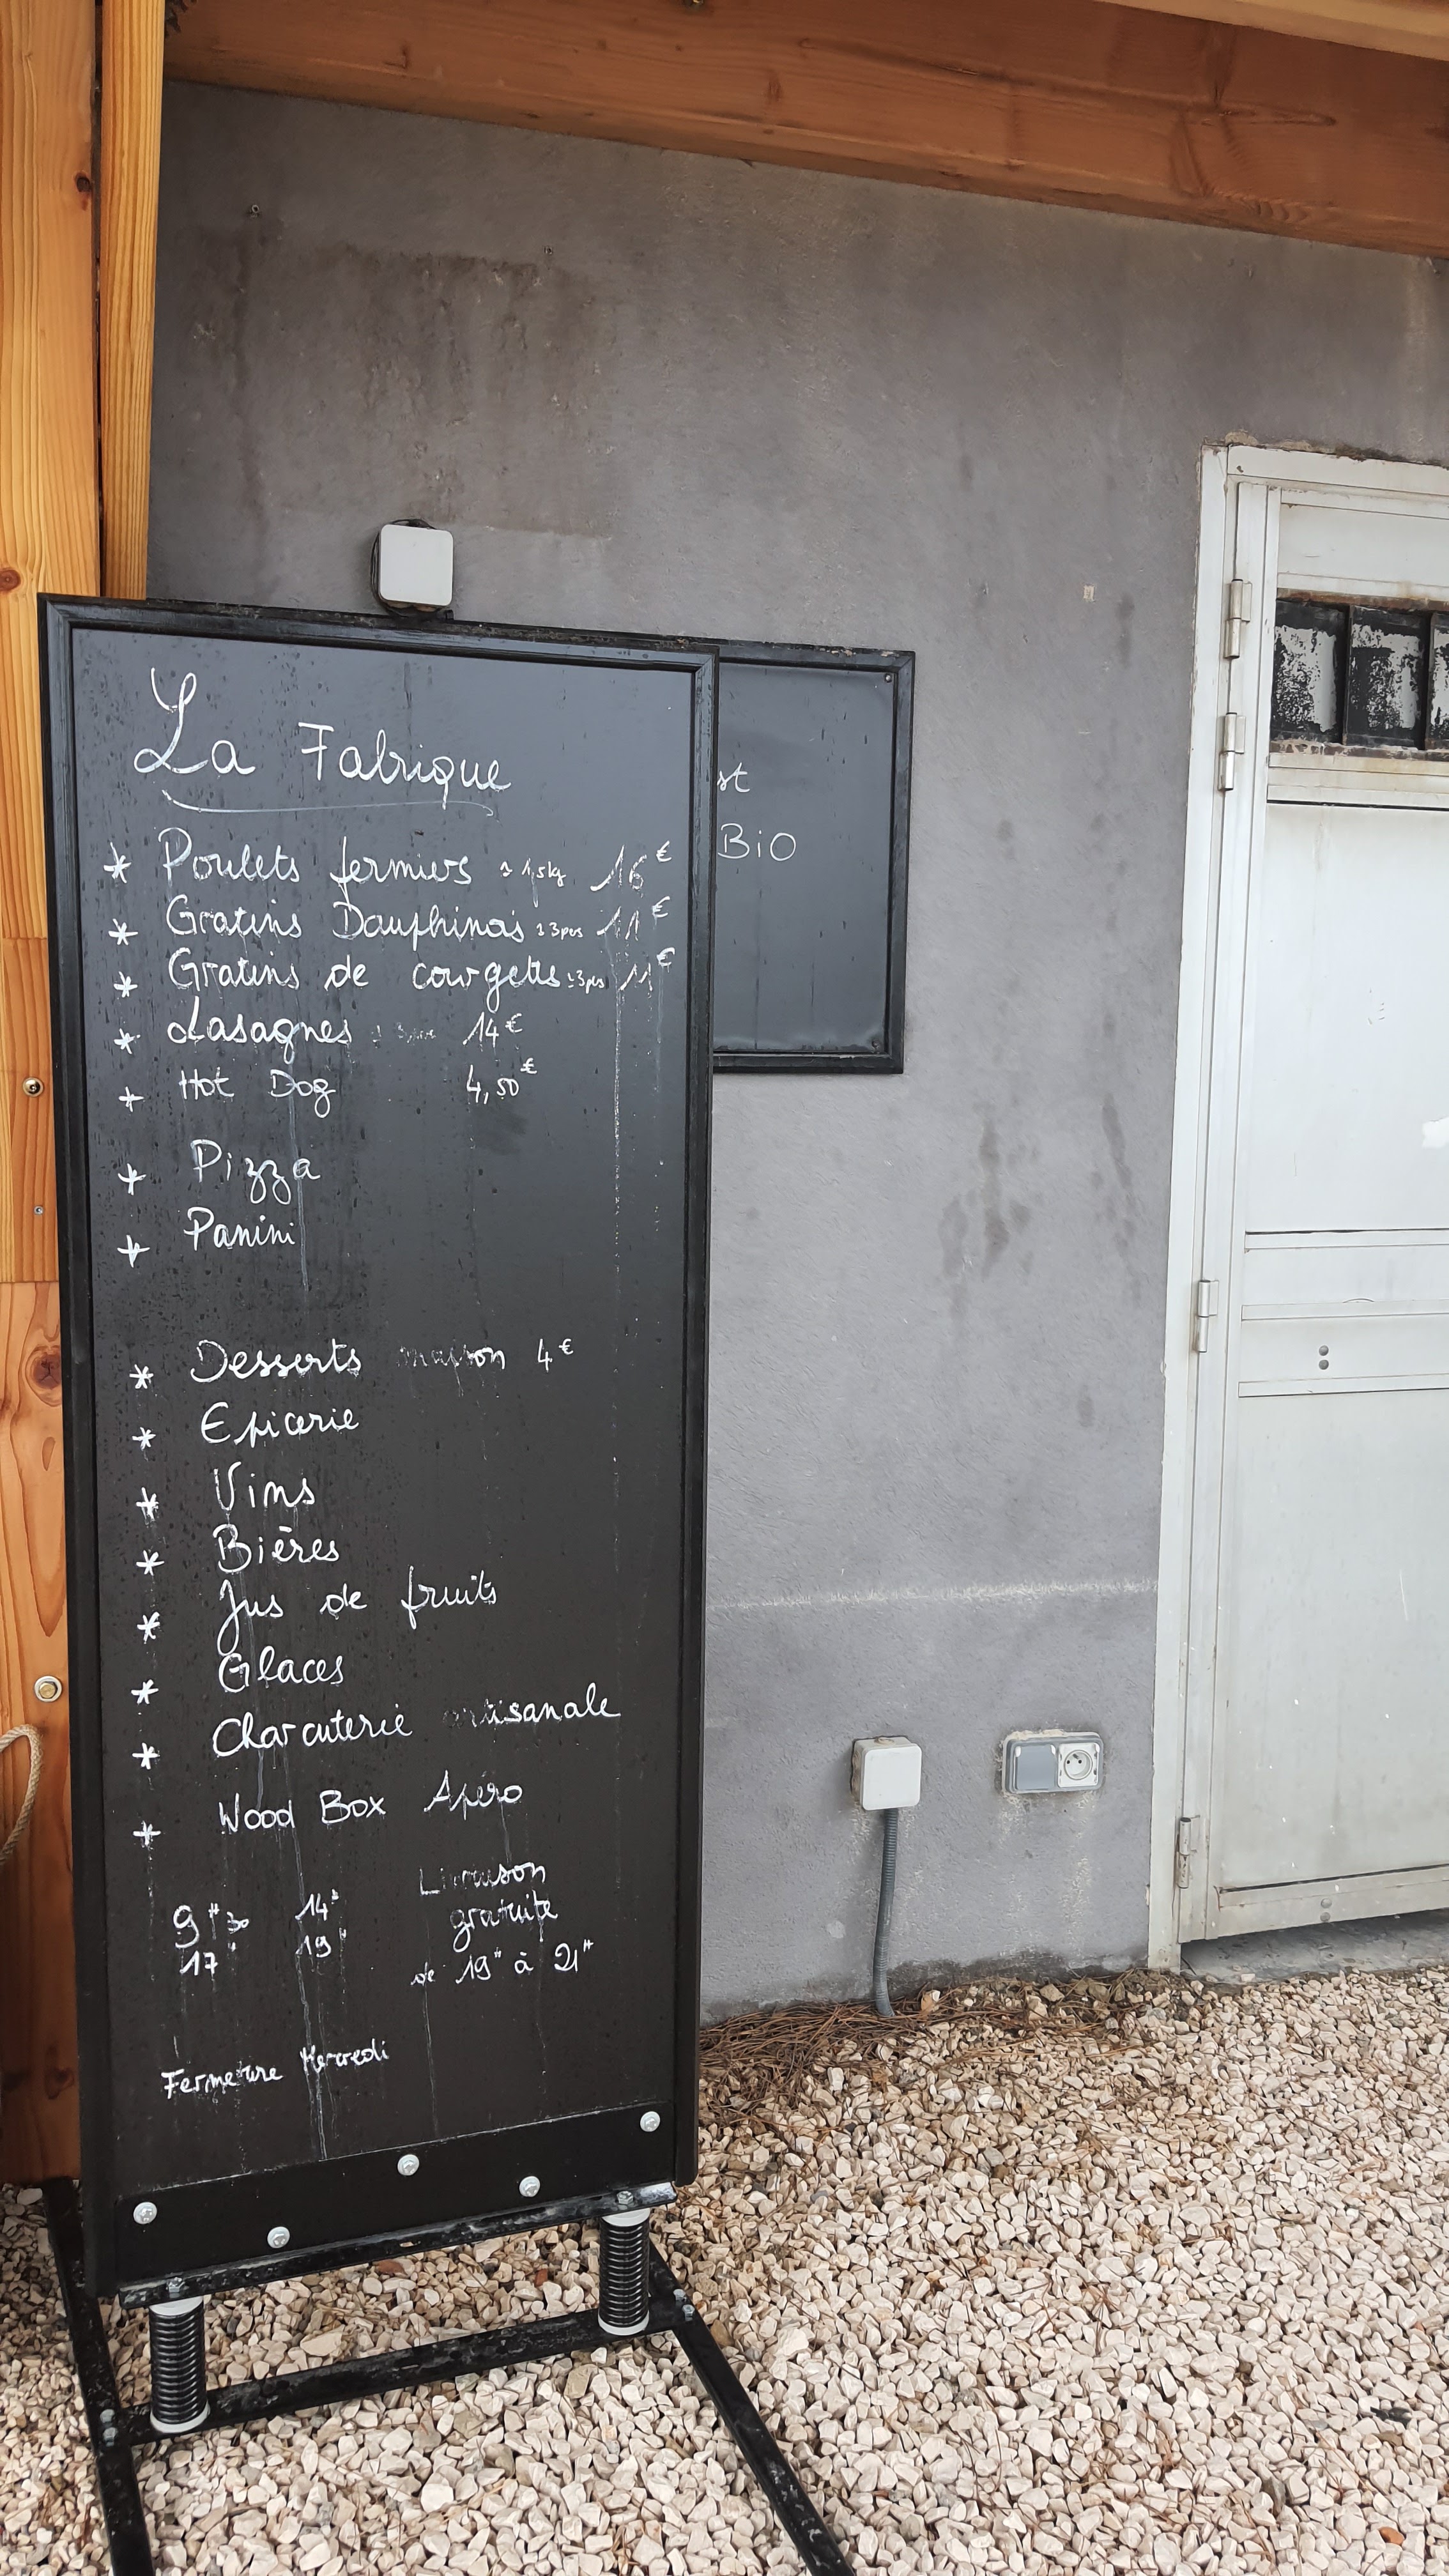 La Fabrique
* Poulets fermiers ≃ 1,5kg 16€
* Gratins Dauphinois ≃ 3pers 11€
* Gratins de courgettes ≃ 3pers 11€
* Lasagnes 14€
* Hot Dog 4,50€
* Pizza
* Panini
* Desserts maison 4€
* Epicerie
* Vins
* Bières
* Jus de fruits
* Glaces
* Charcuterie artisanale
* Wood Box Apéro
9H30 14H
17H 19H
Livraison
gratuite
de 19H à 21H
Fermeture Mercredi
st
BiO